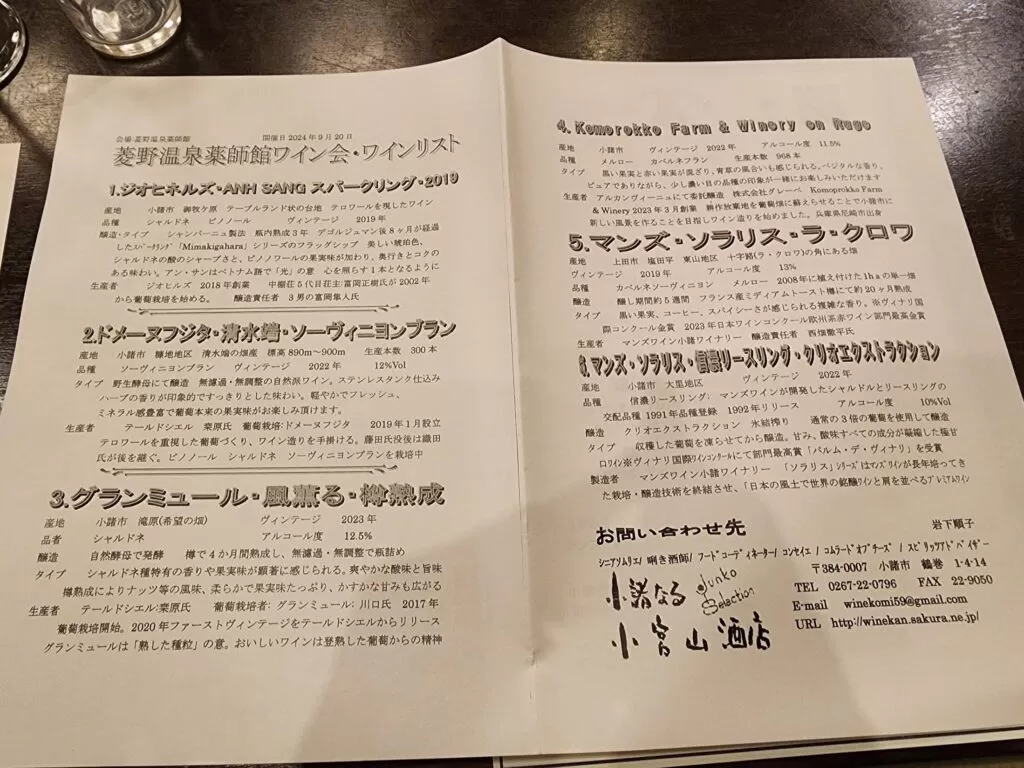 会場・菱野温泉薬師館　開催日2024年9月20日
菱野温泉薬師館ワイン会・ワインリスト
1.ジオヒネルズ・ANH SANG スパークリング・2019
産地　小諸市　御牧ケ原　テーブルランド状の台地　テロワールを視したワイン
品種　シャルドネ　ピノノール　ヴィンテージ　2019年
醸造・タイプ　シャンパーニュ製法　瓶内熟成3年　デゴルジュマン後8ヶ月が経過
したスパークリンド「Mimakigahara」シリーズのフラッグシップ　美しい琥珀色、
シャルドネの酸のシャープさと、ピノノワールの果実味が加わり、奥行きとコクの
ある味わい。アン・サンはベトナム語で「光」の意　心を照らす1本となるように
生産者　ジオヒルズ　2018創業　中棚荘5代目荘主:富岡正樹氏が2002年
から葡萄栽培を始める。　醸造責任者　3男の富岡隼人氏
2.ドメーヌフジタ・清水端・ソーヴィニヨンブラン
産地　小諸市　糠地地区　清水端の畑産　標高890m～900m　生産本数　300本
品種　ソーヴィニヨンブラン　ヴィンテージ　2022年　12%Vol
タイプ　野生酵母にて醸造　無濾過・無調整の自然派ワイン。ステンレスタンク仕込み
ハーブの香りが印象的ですっきりとした味わい。軽やかでフレッシュ、
ミネラル感豊富で葡萄本来の果実味がお楽しみ頂けます。
生産者　テールドシエル　桒原氏　葡萄栽培:ドメーヌフジタ　2019年1月設立
テロワールを重視した葡萄づくり、ワイン造りを手掛ける。藤田氏没後は織田
氏が後を継ぐ。ピノノール　シャルドネ　ソーヴィニヨンブランを栽培中
3.グランミュール・風薫る・樽熟成
産地　小諸市　滝原(希望の畑)　ヴィンテージ　2023年
品者　シャルドネ　アルコール度　12.5%
醸造　自然酵母で発酵　樽で4か月間熟成し、無濾過・無調整で瓶詰め
タイプ　シャルドネ種特有の香りや果実味が顕著に感じられる。爽やかな酸味と旨味
樽熟成によりナッツ等の風味、柔らかで果実味たっぷり、かすかな甘みも広がる
生産者　テールドシエル:桒原氏　葡萄栽培者:グランミュール:川口氏　2017年
葡萄栽培開始。2020年ファーストヴィンテージをテールドシエルからリリース
グランミュールは「熟した種粒」の意。おいしいワインは登熟した葡萄からの精神
4. Komorokko Farm & Winery on Rugo
産地　小諸市　ヴィンテージ　2022年　アルコール度　11.5%
品種　メルロー　カベルネフラン　生産本数　968本
タイプ　黒い果実と赤い果実が混ざり、青草の風合いも感じられる。ベジタルな香り、
ピュアでありながら、少し濃い目の品種の印象が一緒にお楽しみいただけます
生産者　アルカンヴィーニュにて委託醸造　株式会社グレーペ　Komoprokko Farm
& Winery 2023年3月創業　耕作放棄地を葡萄畑に蘇えらせることで小諸市に
新しい風景を作ることを目指しワイン造りを始めました。兵庫県尼崎市出身
5.マンズ・ソラリス・ラ・クロワ
産地　上田市　塩田平　東山地区　十字路(ラ・クロワ)の角にある畑
ヴィンテージ　2019年　アルコール度　13%
品種　カベルネソーヴィニヨン　メルロー　2008年に植え付けた1haの単一畑
醸造　醸し期間約5週間　フランス産ミディアムトースト樽にて約20ヶ月熟成
タイプ　黒い果実、コーヒー、スパイシーさが感じられる複雑な香り。※ヴィナリ国
際コンクール金賞　2023年日本ワインコンクール欧州系赤ワイン部門最高金賞
生産者　マンズワイン小諸ワイナリー　醸造責任者　西畑徹平氏
6.マンズ・ソラリス・信濃リースリング・クリオエクストラクション
産地　小諸市　大里地区　ヴィンテージ　2022年
品種　信濃リースリング;　マンズワインが開発したシャルドルとリースリングの
交配品種　1991年品種登録　1992年リリース　アルコール度　10%Vol
醸造　クリオエクストラクション　氷結搾り　通常の3倍の葡萄を使用して醸造
タイプ　収穫した葡萄を凍らせてから醸造。甘み、酸味すべての成分が凝縮した極甘
口ワイン※ヴィナリ国際ワインコンクールにて部門最高賞「パルム・デ・ヴィナリ」を受賞
製造者　マンズワイン小諸ワイナリー　「ソラリス」シリーズはマンズワインが長年培ってき
た栽培・醸造技術を終結させ、「日本の風土で世界の銘醸ワインと肩を並べるプレミアムワイン
お問い合わせ先　岩下順子
シニアソムリエ/ 唎き酒師/ フードコーディネーター/ コンセイエ / コムラードオブチーズ / スピリッツアドバイザー
〒384-0007　小諸市　鶴巻　1-4-14
TEL　0267-22-0796　FAX　22-9050
E-mail　winekomi59@gmail.com
URL　http://winekan.sakura.ne.jp/
小諸なる
Junko Selection
小宮山酒店